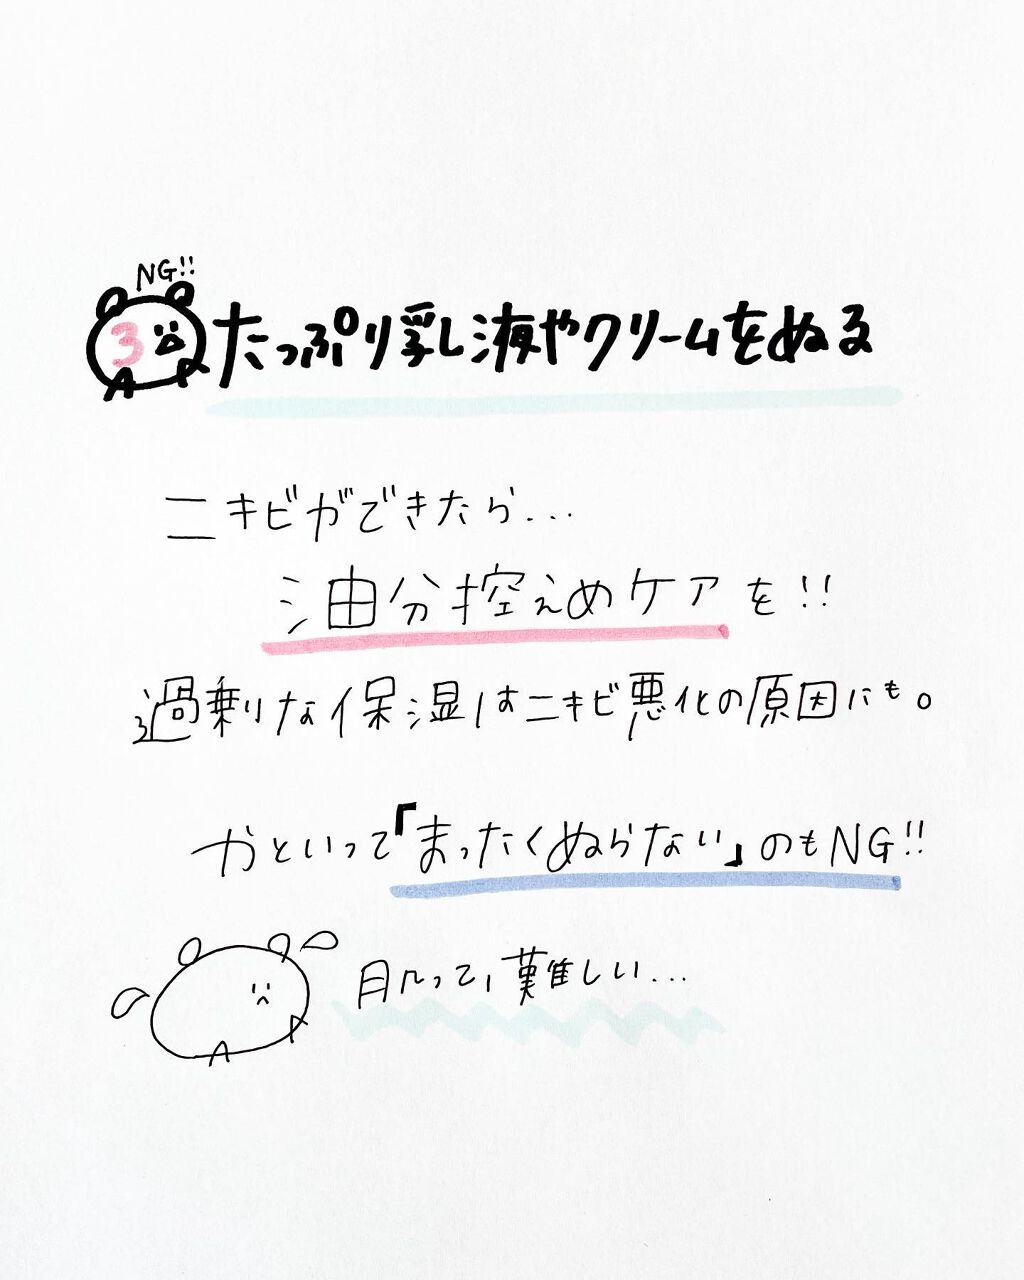 NG!!
3 たっぷり乳液やクリームをぬる
ニキビができたら...
油分控えめケアを!!
過剰な保湿はニキビ悪化の原因にも。
かといって「まったくぬらない」のもNG!!
肌って、難しい...